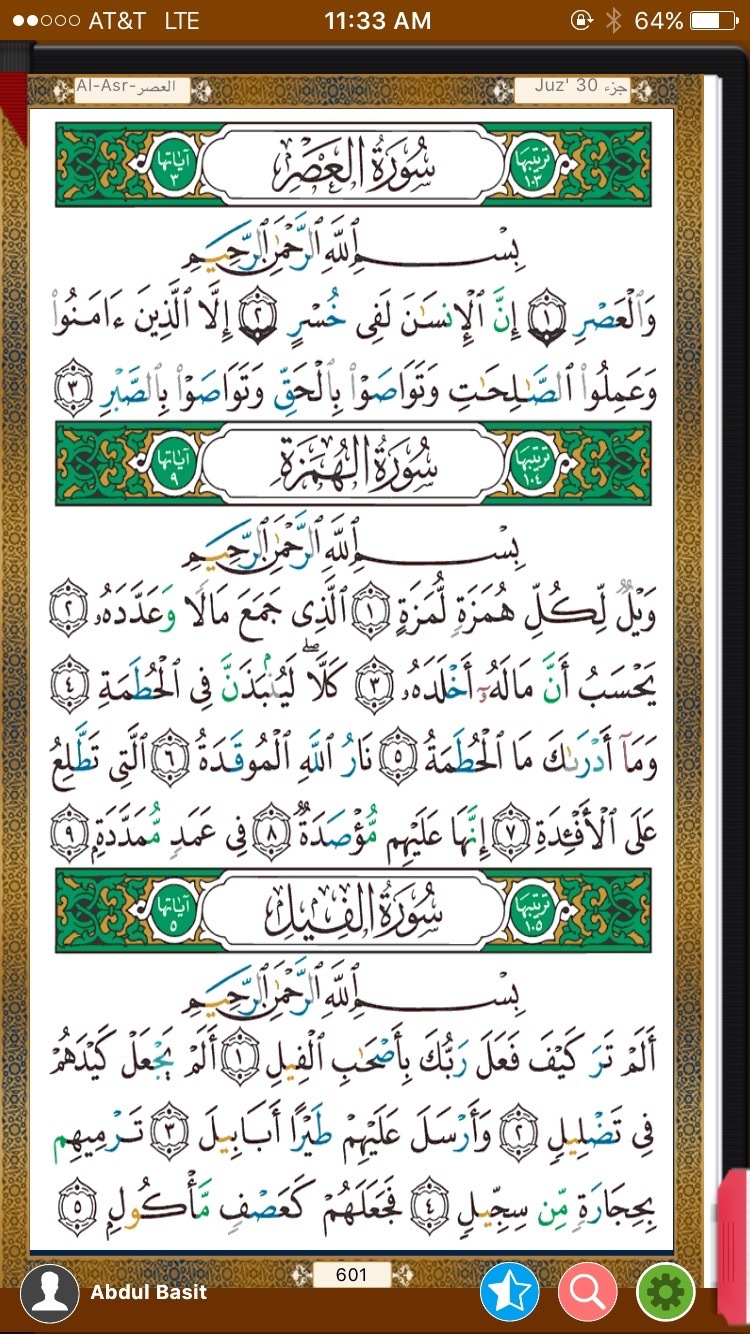 AT&T LTE 11:33 AM 64%
Al-Asr-العصر Juz' 30 جزء
آياتها ٣ سُورَةُ العَصْرِ ترتيبها ١٠٣
بِسْمِ ٱللَّهِ ٱلرَّحْمَٰنِ ٱلرَّحِيمِ
وَٱلْعَصْرِ ١ إِنَّ ٱلْإِنسَٰنَ لَفِى خُسْرٍ ٢ إِلَّا ٱلَّذِينَ ءَامَنُوا۟
وَعَمِلُوا۟ ٱلصَّٰلِحَٰتِ وَتَوَاصَوْا۟ بِٱلْحَقِّ وَتَوَاصَوْا۟ بِٱلصَّبْرِ ٣
آياتها ٩ سُورَةُ الهُمَزَةِ ترتيبها ١٠٤
بِسْمِ ٱللَّهِ ٱلرَّحْمَٰنِ ٱلرَّحِيمِ
وَيْلٌ لِّكُلِّ هُمَزَةٍ لُّمَزَةٍ ١ ٱلَّذِى جَمَعَ مَالًا وَعَدَّدَهُۥ ٢
يَحْسَبُ أَنَّ مَالَهُۥٓ أَخْلَدَهُۥ ٣ كَلَّا ۖ لَيُنۢبَذَنَّ فِى ٱلْحُطَمَةِ ٤
وَمَآ أَدْرَىٰكَ مَا ٱلْحُطَمَةُ ٥ نَارُ ٱللَّهِ ٱلْمُوقَدَةُ ٦ ٱلَّتِى تَطَّلِعُ
عَلَى ٱلْأَفْـِٔدَةِ ٧ إِنَّهَا عَلَيْهِم مُّؤْصَدَةٌ ٨ فِى عَمَدٍ مُّمَدَّدَةٍۭ ٩
آياتها ٥ سُورَةُ الفِيلِ ترتيبها ١٠٥
بِسْمِ ٱللَّهِ ٱلرَّحْمَٰنِ ٱلرَّحِيمِ
أَلَمْ تَرَ كَيْفَ فَعَلَ رَبُّكَ بِأَصْحَٰبِ ٱلْفِيلِ ١ أَلَمْ يَجْعَلْ كَيْدَهُمْ
فِى تَضْلِيلٍ ٢ وَأَرْسَلَ عَلَيْهِمْ طَيْرًا أَبَابِيلَ ٣ تَرْمِيهِم
بِحِجَارَةٍ مِّن سِجِّيلٍ ٤ فَجَعَلَهُمْ كَعَصْفٍ مَّأْكُولٍۭ ٥
601
Abdul Basit